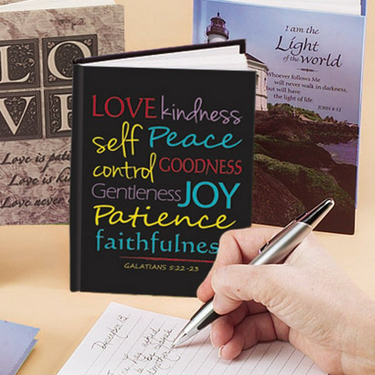 LOVE
Love is patie
Love is k
Love never
LOVE kindness
self Peace
control GOODNESS
Gentleness JOY
Patience
faithfulness
GALATIANS 5:22-23
I am the
Light
of the world
Whoever follows Me
will never walk in darkness,
but will have
the light of life.
JOHN 8:12